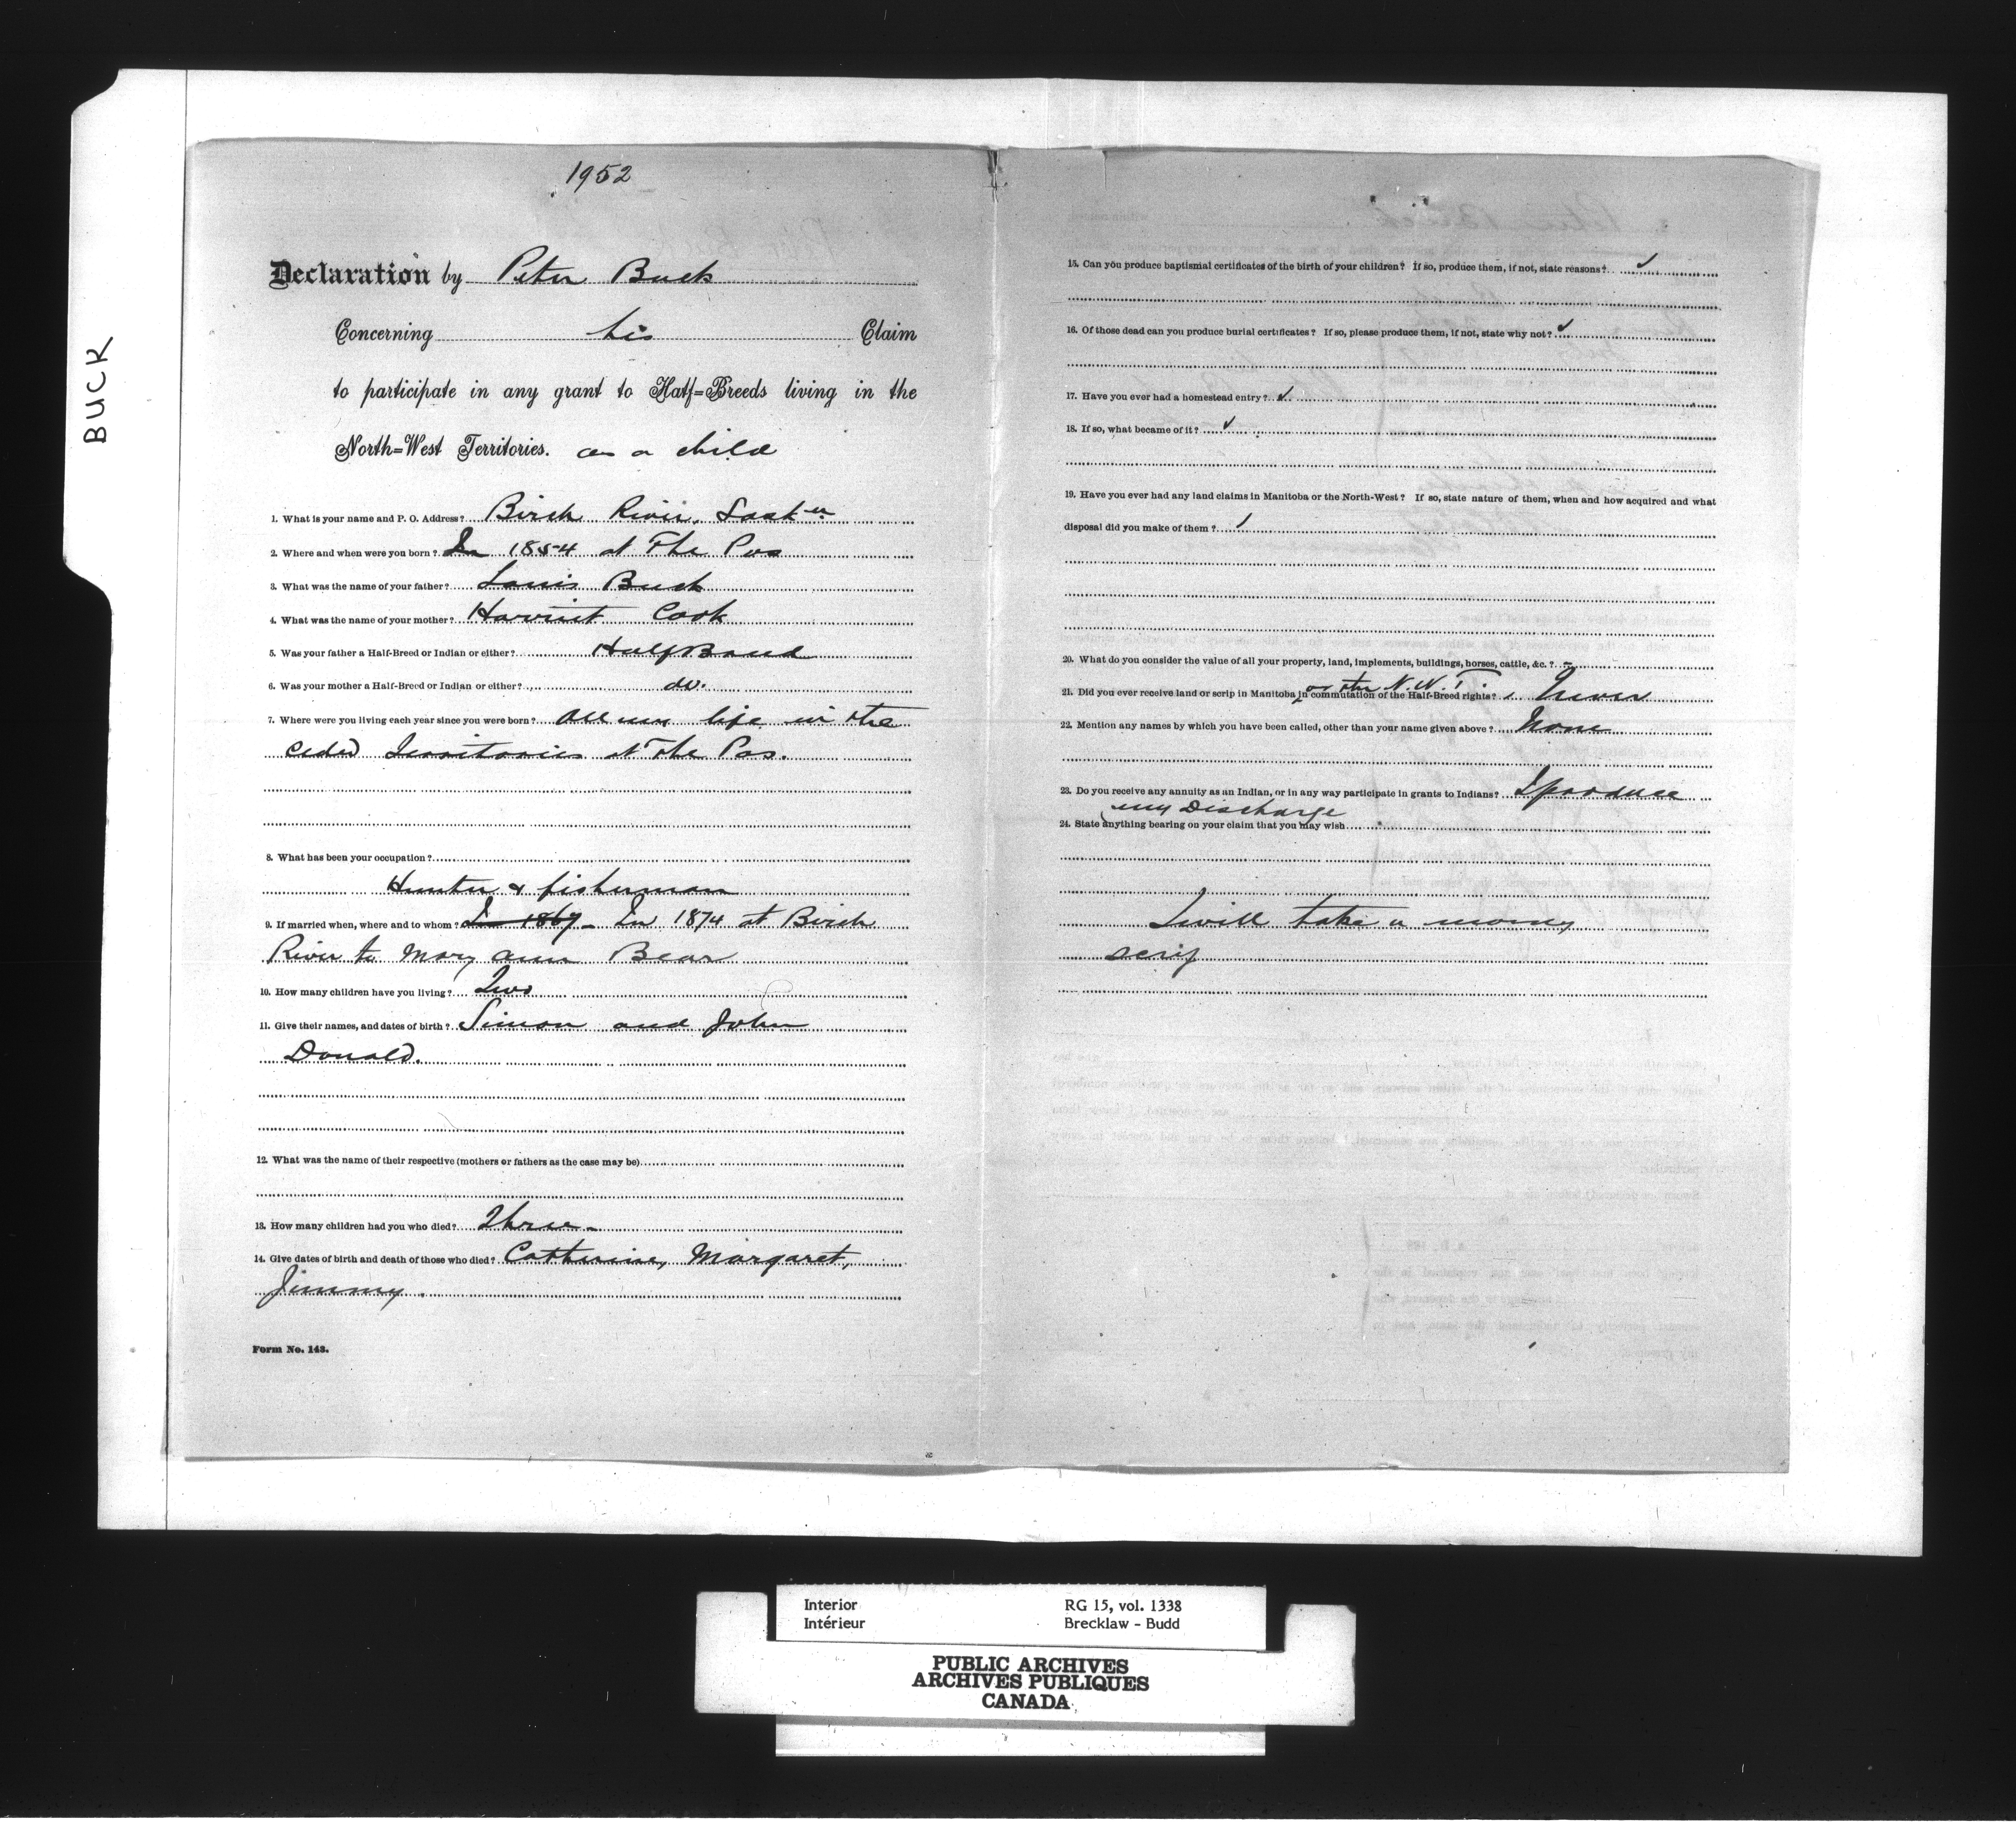 1952
BUCK
Declaration by Peter Buck
Concerning his Claim
to participate in any grant to Half=Breeds living in the
North=West Territories. as a child
1. What is your name and P. O. Address? Birch River, Sask n
2. Where and when were you born? In 1854 at The Pas
3. What was the name of your father? Louis Buck
4. What was the name of your mother? Harriet Cook
5. Was your father a Half-Breed or Indian or either? Half Breed
6. Was your mother a Half-Breed or Indian or either? do.
7. Where were you living each year since you were born? All my life in the
ceded Territories at The Pas.
8. What has been your occupation?
Hunter & fisherman
9. If married when, where and to whom? In 1867 - In 1874 at Birch
River to Mary Ann Bear
10. How many children have you living? Two
11. Give their names, and dates of birth? Simon and John
Donald.
12. What was the name of their respective (mothers or fathers as the case may be)
13. How many children had you who died? Three -
14. Give dates of birth and death of those who died? Catherine, Margaret,
Jimmy.
Form No. 143.
15. Can you produce baptismal certificates of the birth of your children? If so, produce them, if not, state reasons? ✓
16. Of those dead can you produce burial certificates? If so, please produce them, if not, state why not? ✓
17. Have you ever had a homestead entry? ✓
18. If so, what became of it? ✓
19. Have you ever had any land claims in Manitoba or the North-West? If so, state nature of them, when and how acquired and what
disposal did you make of them?
20. What do you consider the value of all your property, land, implements, buildings, horses, cattle, &c.? -
or the N.W.T
21. Did you ever receive land or scrip in Manitoba in commutation of the Half-Breed rights? Never
22. Mention any names by which you have been called, other than your name given above? None
23. Do you receive any annuity as an Indian, or in any way participate in grants to Indians? I produce
my Discharge
24. State anything bearing on your claim that you may wish
I will take a money
scrip
Interior RG 15, vol. 1338
Intérieur Brecklaw - Budd
PUBLIC ARCHIVES
ARCHIVES PUBLIQUES
CANADA